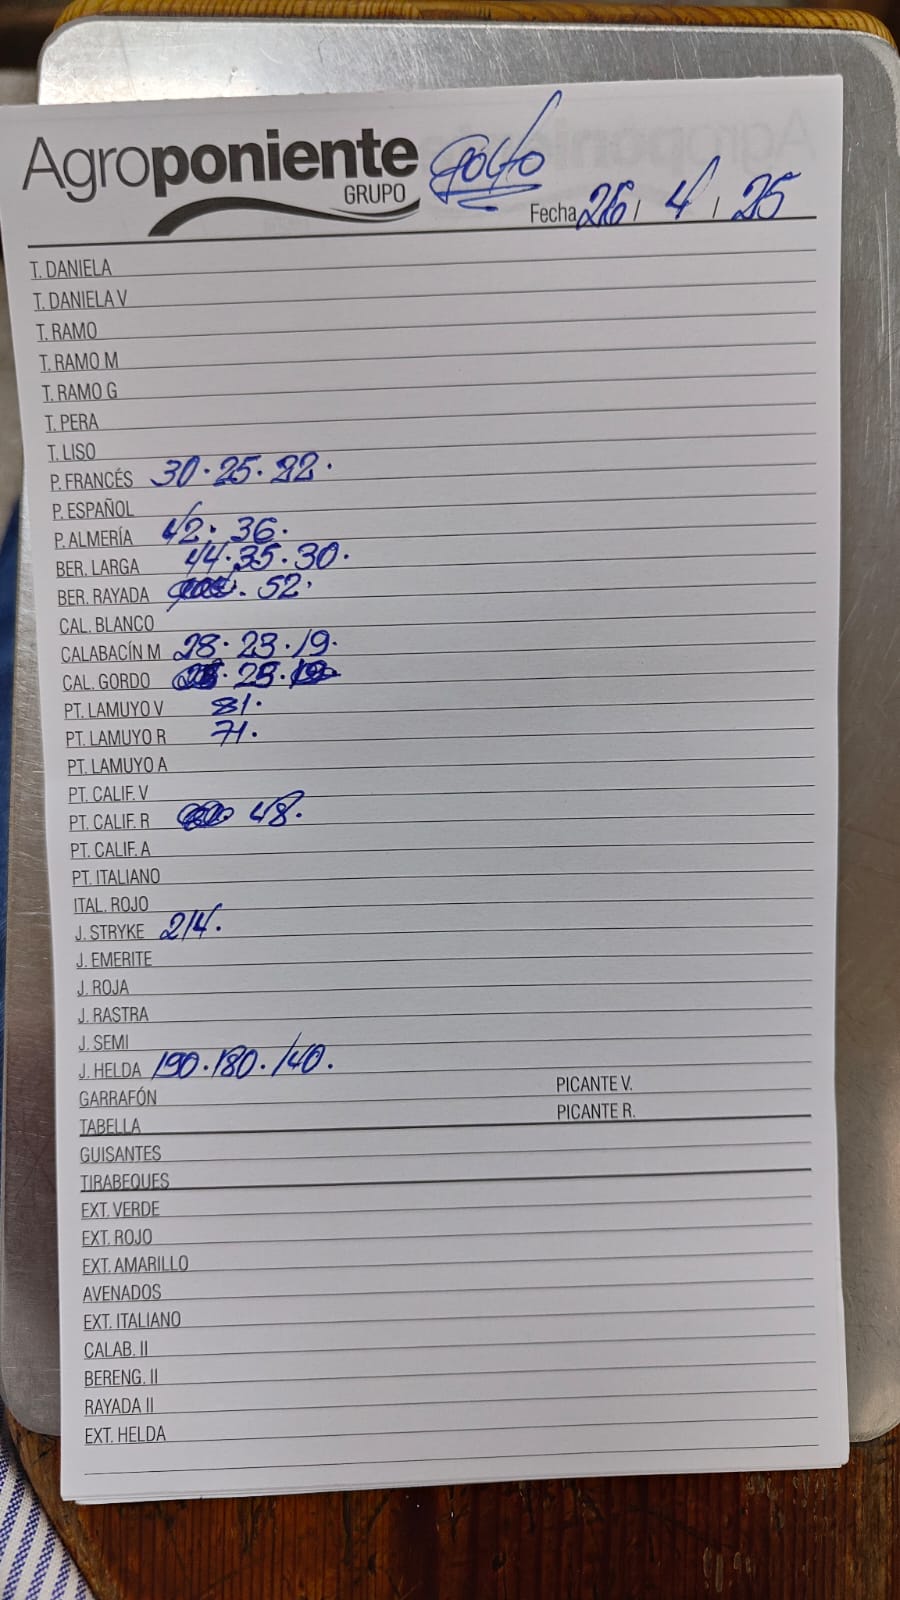 Agroponiente
GRUPO
Golfo
Fecha 26 / 4 / 25
T. DANIELA
T. DANIELA V
T. RAMO
T. RAMO M
T. RAMO G
T. PERA
T. LISO
P. FRANCÉS 30. 25. 22.
P. ESPAÑOL
P. ALMERÍA 42. 36.
BER. LARGA 44. 35. 30.
BER. RAYADA . 52.
CAL. BLANCO
CALABACÍN M 28. 23. 19.
CAL. GORDO . 25.
PT. LAMUYO V 81.
PT. LAMUYO R 71.
PT. LAMUYO A
PT. CALIF. V
PT. CALIF. R 48.
PT. CALIF. A
PT. ITALIANO
ITAL. ROJO
J. STRYKE 214.
J. EMERITE
J. ROJA
J. RASTRA
J. SEMI
J. HELDA 190. 180. 140.
GARRAFÓN PICANTE V.
TABELLA PICANTE R.
GUISANTES
TIRABEQUES
EXT. VERDE
EXT. ROJO
EXT. AMARILLO
AVENADOS
EXT. ITALIANO
CALAB. II
BERENG. II
RAYADA II
EXT. HELDA